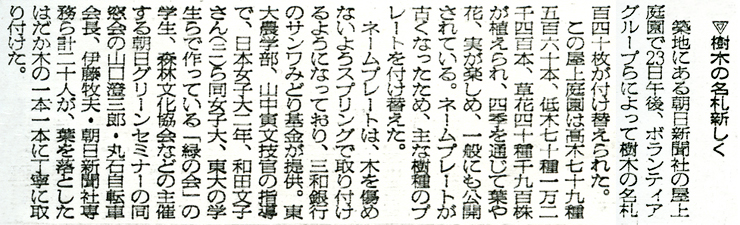 ▽樹木の名札新しく
築地にある朝日新聞社の屋上
庭園で23日午後、ボランティア
グループらによって樹木の名札
百四十枚が付け替えられた。
この屋上庭園は高木七十九種
五百六十本、低木七十種一万二
千四百本、草花四十種千九百株
が植えられ、四季を通じて葉や
花、実が楽しめ、一般にも公開
されている。ネームプレートが
古くなったため、主な樹種のプ
レートを付け替えた。
ネームプレートは、木を傷め
ないようスプリングで取り付け
るようになっており、三和銀行
のサンワみどり基金が提供。東
大農学部、山中寅文技官の指導
で、日本女子大二年、和田文子
さん(二〇)ら同女子大、東大の学
生らで作っている「緑の会」の
学生、森林文化協会などの主催
する朝日グリーンセミナーの同
窓会の山口澄三郎・丸石自転車
会長、伊藤牧夫・朝日新聞社専
務ら計二十人が、葉を落とした
はだか木の一本一本に丁寧に取
り付けた。